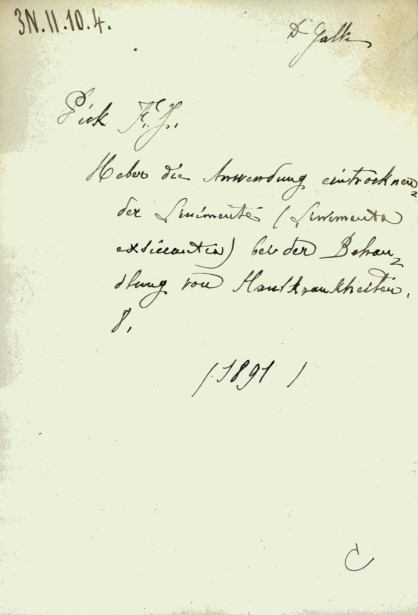 3N.II.10.4.
Dr Galli
Pick F. J.
Ueber die Anwendung eintrocknen-
der Linimente (Linimenta
exsiccantia) bei der Behan-
dlung von Hautkrankheiten.
8.
(1891)
C